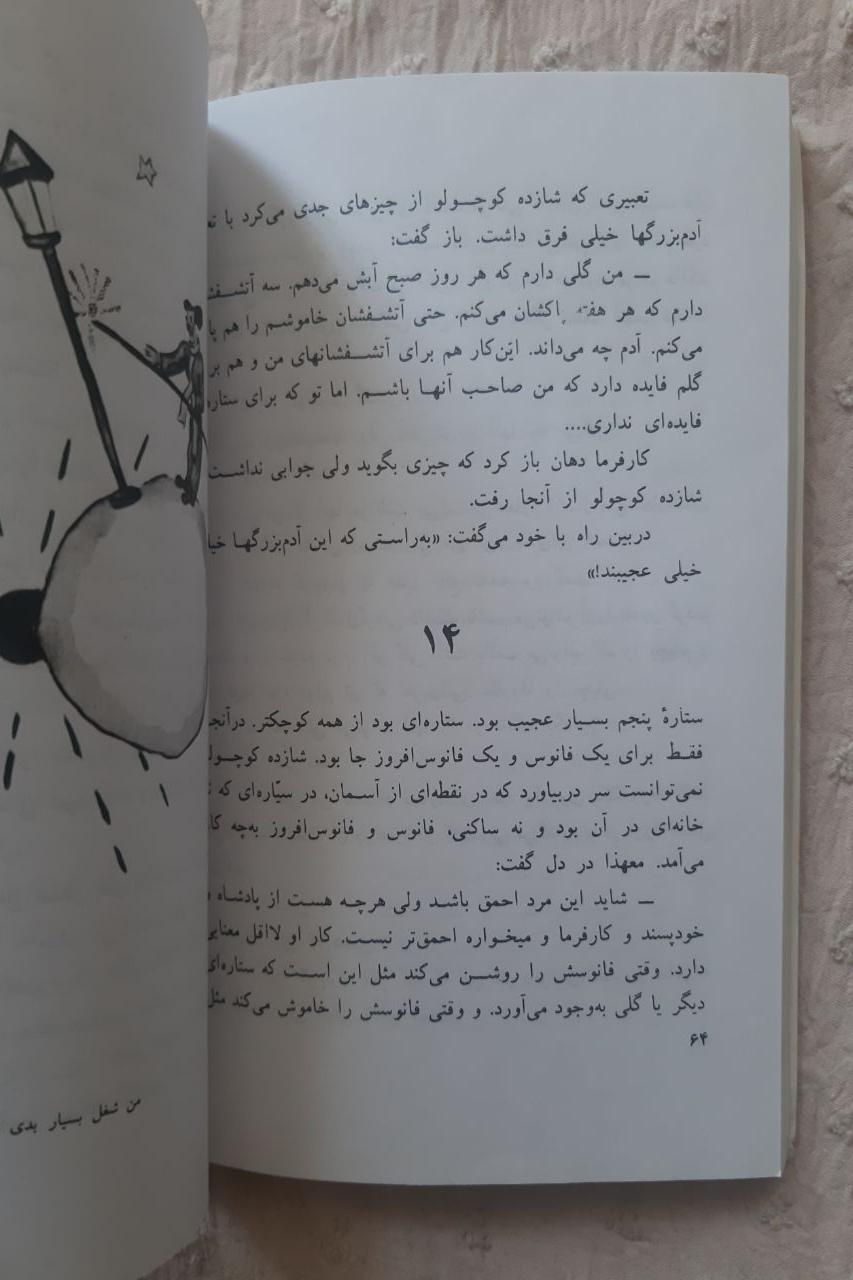 تعبیری که شازده کوچـولو از چیزهای جدی می‌کرد با
آدم‌بزرگها خیلی فرق داشت. باز گفت:
ــ من گلی دارم که هر روز صبح آبش می‌دهم. سه
دارم که هر هفته پاکشان می‌کنم. حتی آتشـفشان خاموشـم را هم
می‌کنم. آدم چه می‌داند. این‌کار هم برای آتشـفشانهای من و هم
گلم فایده دارد که من صاحب آنهـا باشـم. اما تو که برای
فایده‌ای نداری....
کارفرما دهان باز کرد که چیزی بگوید ولی جوابی نداشت
شازده کوچولو از آنجا رفت.
دربین راه با خود می‌گفت: «به‌راسـتی که این آدم‌بزرگهـا
خیلی عجیبند!»
۱۴
ستارهٔ پنجم بسـیار عجیب بود. ستاره‌ای بود از همه کوچکتر.
فقـط برای یک فانوس و یک فانوس‌افروز جا بود. شازده
نمی‌توانست سر دربیاورد که در نقطه‌ای از آسـمان، در سیّاره‌ای که
خانه‌ای در آن بود و نه ساکنی، فانوس و فانوس‌افروز به‌چه
می‌آمد. معهذا در دل گفت:
ــ شاید این مرد احمق باشـد ولی هرچـه هست از پادشـاه
خودپسند و کارفرما و میخواره احمق‌تر نیسـت. کار او لااقل
دارد. وقتی فانوسش را روشـن می‌کند مثل این اسـت که ستاره‌ای
دیگر یا گلی به‌وجود می‌آورد. و وقتی فانوسش را خاموش می‌کند مثل
۶۴
من شغل بسیار بدی